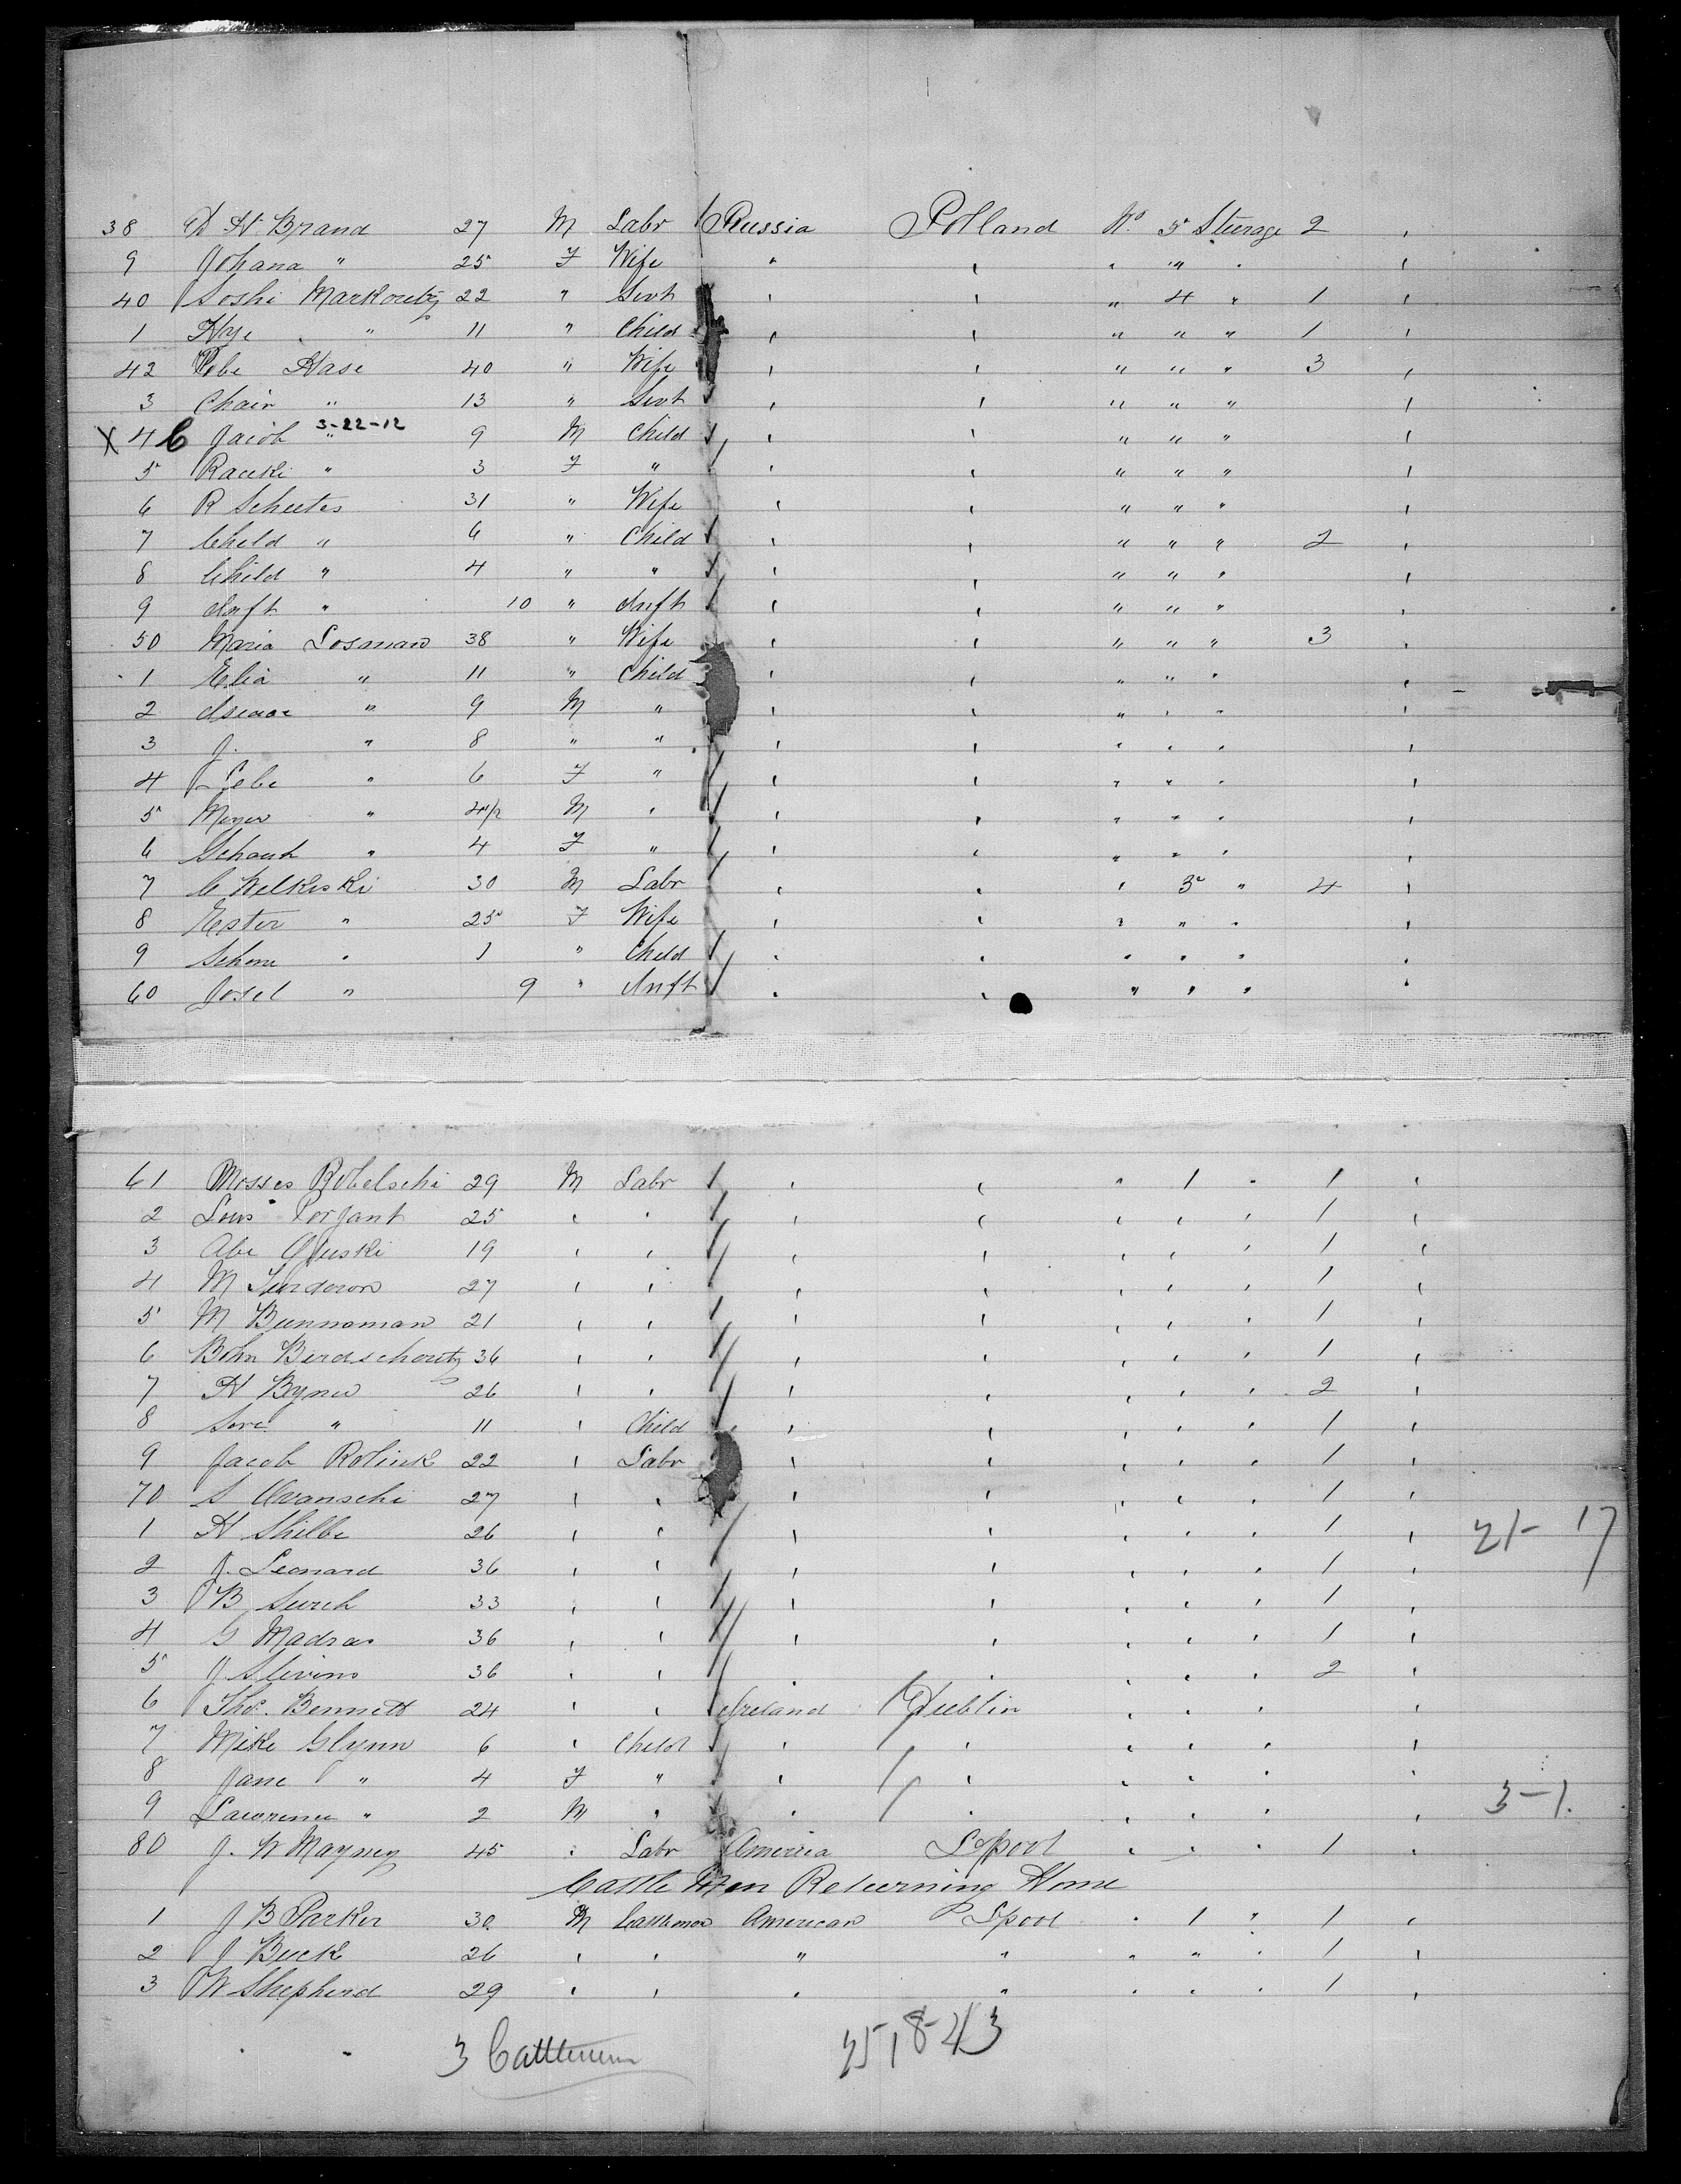 38 D H. Brand 27 M Labr Russia Polland No 5 Steerage 2
9 Johana " 25 F Wife " " " " "
40 Soshi Markovetz 22 " Servt " " " 4 " 1
1 Hye " 11 " Child " " " " " 1
42 Hase 40 " Wife " " " " " 3
3 Chair " 13 " Servt " " " " "
X 4 C Jacob " 3-22-12 9 M Child " " " " "
5 Raceke " 3 F " " " " " "
6 R Scheetes 31 " Wife " " " " "
7 Child " 6 " Child " " " " " 2
8 Child " 4 " " " " " " "
9 Inft " 10 " Inft " " " " "
50 Maria Losman 38 " Wife " " " " " 3
1 Elia " 11 " Child " " " " "
2 Iseaac " 9 M " " " " " "
3 J. " 8 " " " " " " "
4 Lebe " 6 F " " " " " "
5 Meyer " 4 1/2 M " " " " " "
6 " 4 F " " " " " "
7 C Welkeski 30 M Labr " " " 3 " 4
8 Ester " 25 F Wife " " " " "
9 " 1 " Child " " " " "
60 Josel " 9 " Inft " " " " "
61 Mosses Robelschi 29 M Labr " " " 1 " 1
2 Louis 25 " " " " " " " 1
3 Abe 19 " " " " " " " 1
4 M 27 " " " " " " " 1
5 M Bunnaman 21 " " " " " " " 1
6 Birdschoutz 36 " " " " " " " 1
7 H Byner 26 " " " " " " " 2
8 " 11 " Child " " " " " 1
9 Jacob Rolink 22 " Labr " " " " " 1
70 S 27 " " " " " " " 1
1 H Shilbe 26 " " " " " " " 1 21-17
2 J. Leonard 36 " " " " " " " 1
3 B 33 " " " " " " " 1
4 G Madras 36 " " " " " " " 1
5 J Slivins 36 " " " " " " " 2
6 Tho. Bennett 24 " " Ireland Dublin " " "
7 Mike Glynn 6 " Child " " " " "
8 Jane " 4 F " " " " " "
9 Lawrence " 2 M " " " " " " 3-1.
80 J. W Mayney 45 " Labr America L'pool " " " 1
Cattle Men Returning Home
1 J B Parker 30 M Cattleman American L'pool " 1 " 1
2 J Buck 26 " " " " " " " 1
3 W Shepherd 29 " " " " " " " 1
3 Cattlemen